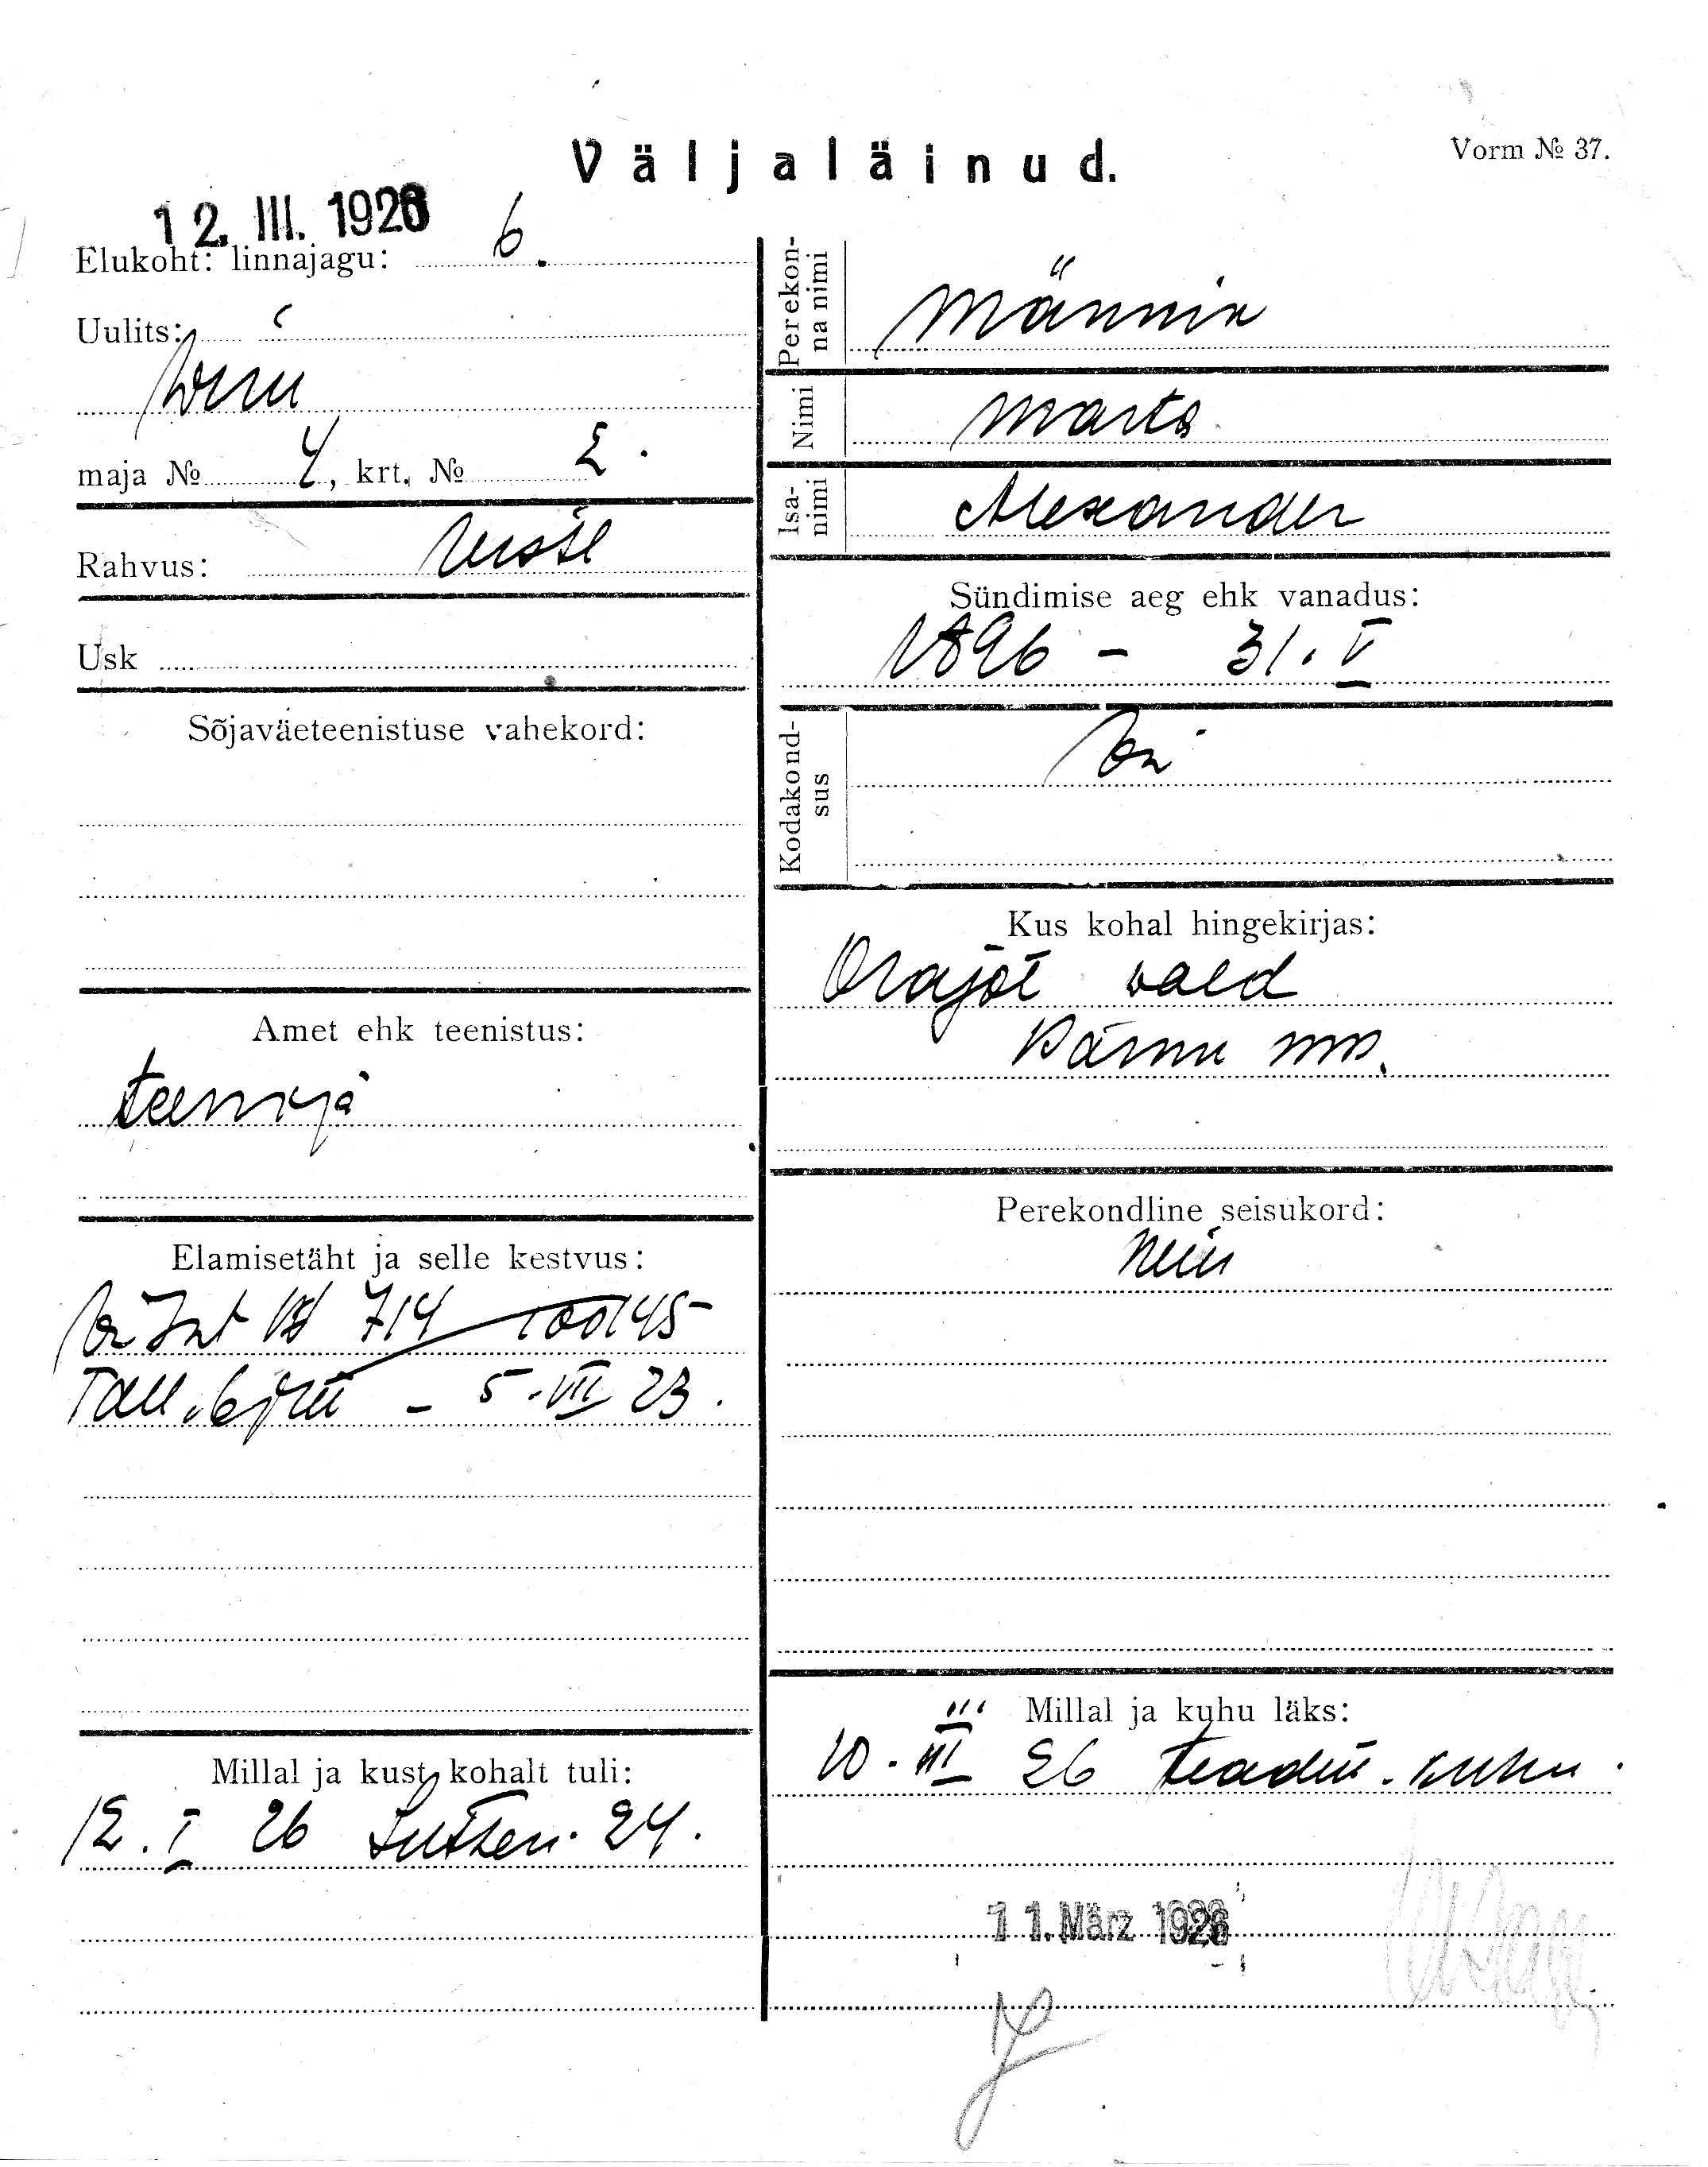 Väljaläinud.
Vorm № 37.
12. III. 1926
Elukoht: linnajagu: 6.
Uulits:
maja № 4, krt. № 2.
Rahvus:
Usk
Sõjaväeteenistuse vahekord:
Amet ehk teenistus:
teenija
Elamisetäht ja selle kestvus:
714 100145
Tall. 6 - 5. VII 23.
Millal ja kust kohalt tuli:
12. I 26 24.
Perekonna nimi
Männik
Nimi
Marta
Isanimi
Alexander
Sündimise aeg ehk vanadus:
1896 - 31. V
Kodakondsus
Kus kohal hingekirjas:
Orajõe vald
Pärnu mm.
Perekondline seisukord:
neiu
Millal ja kuhu läks:
10. III 26 teadm. kuhu.
11. März 1926